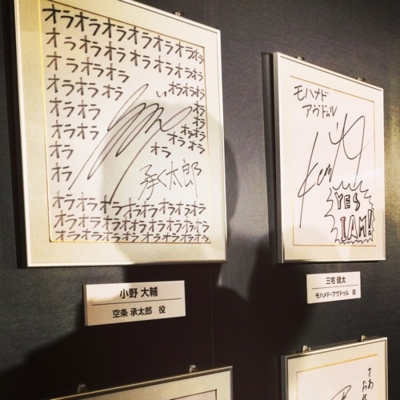 オラオラオラオラオラオラオラ
オラオラオラオラオラオラオラ
オラオラオラ オラオラ
オラオラ オラ
オラオラ オラ
オラオラ オラオラ
オラ オラ オラオラ
オラ オラ
承太郎
オラオラオラ オラオラ
オラオラオラオラオラオラオラ
オラオラオラオラオラオラオラ
オラオラオラオラオラオラオラ
小野 大輔
空条 承太郎 役
モハメド
アヴドゥル
YES
I AM!
三宅 健太
モハメド・アヴドゥル 役